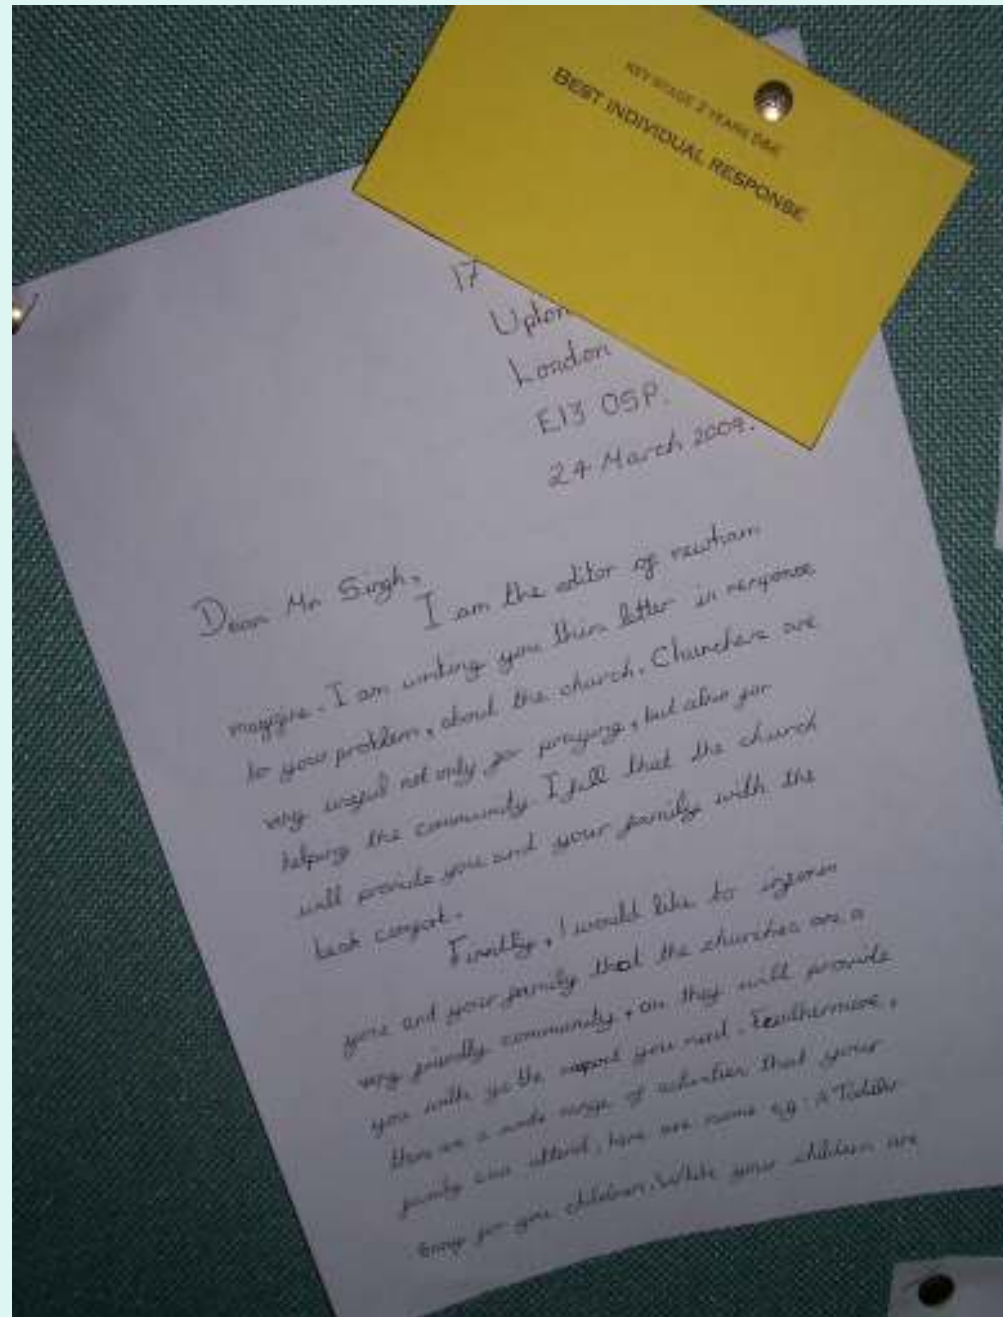 KEY STAGE 2 YEARS 5&6
BEST INDIVIDUAL RESPONSE
17
Upton
London
E13 0SP.
24 March 2009.
Dear Mr Singh,
I am the editor of newham
magizine. I am writing you this letter in response
to your problem, about the church. Churches are
very useful not only for praying, but also for
helping the community. I fell that the church
will provide you and your family with the
best comfort.
Firstly, I would like to inform
you and your family that the churches are a
very friendly community, as they will provide
you with the support you need. Feurthermore,
there are a wide range of activities that your
family can attend, here are some eg: A Toddler
for your children. While your children are